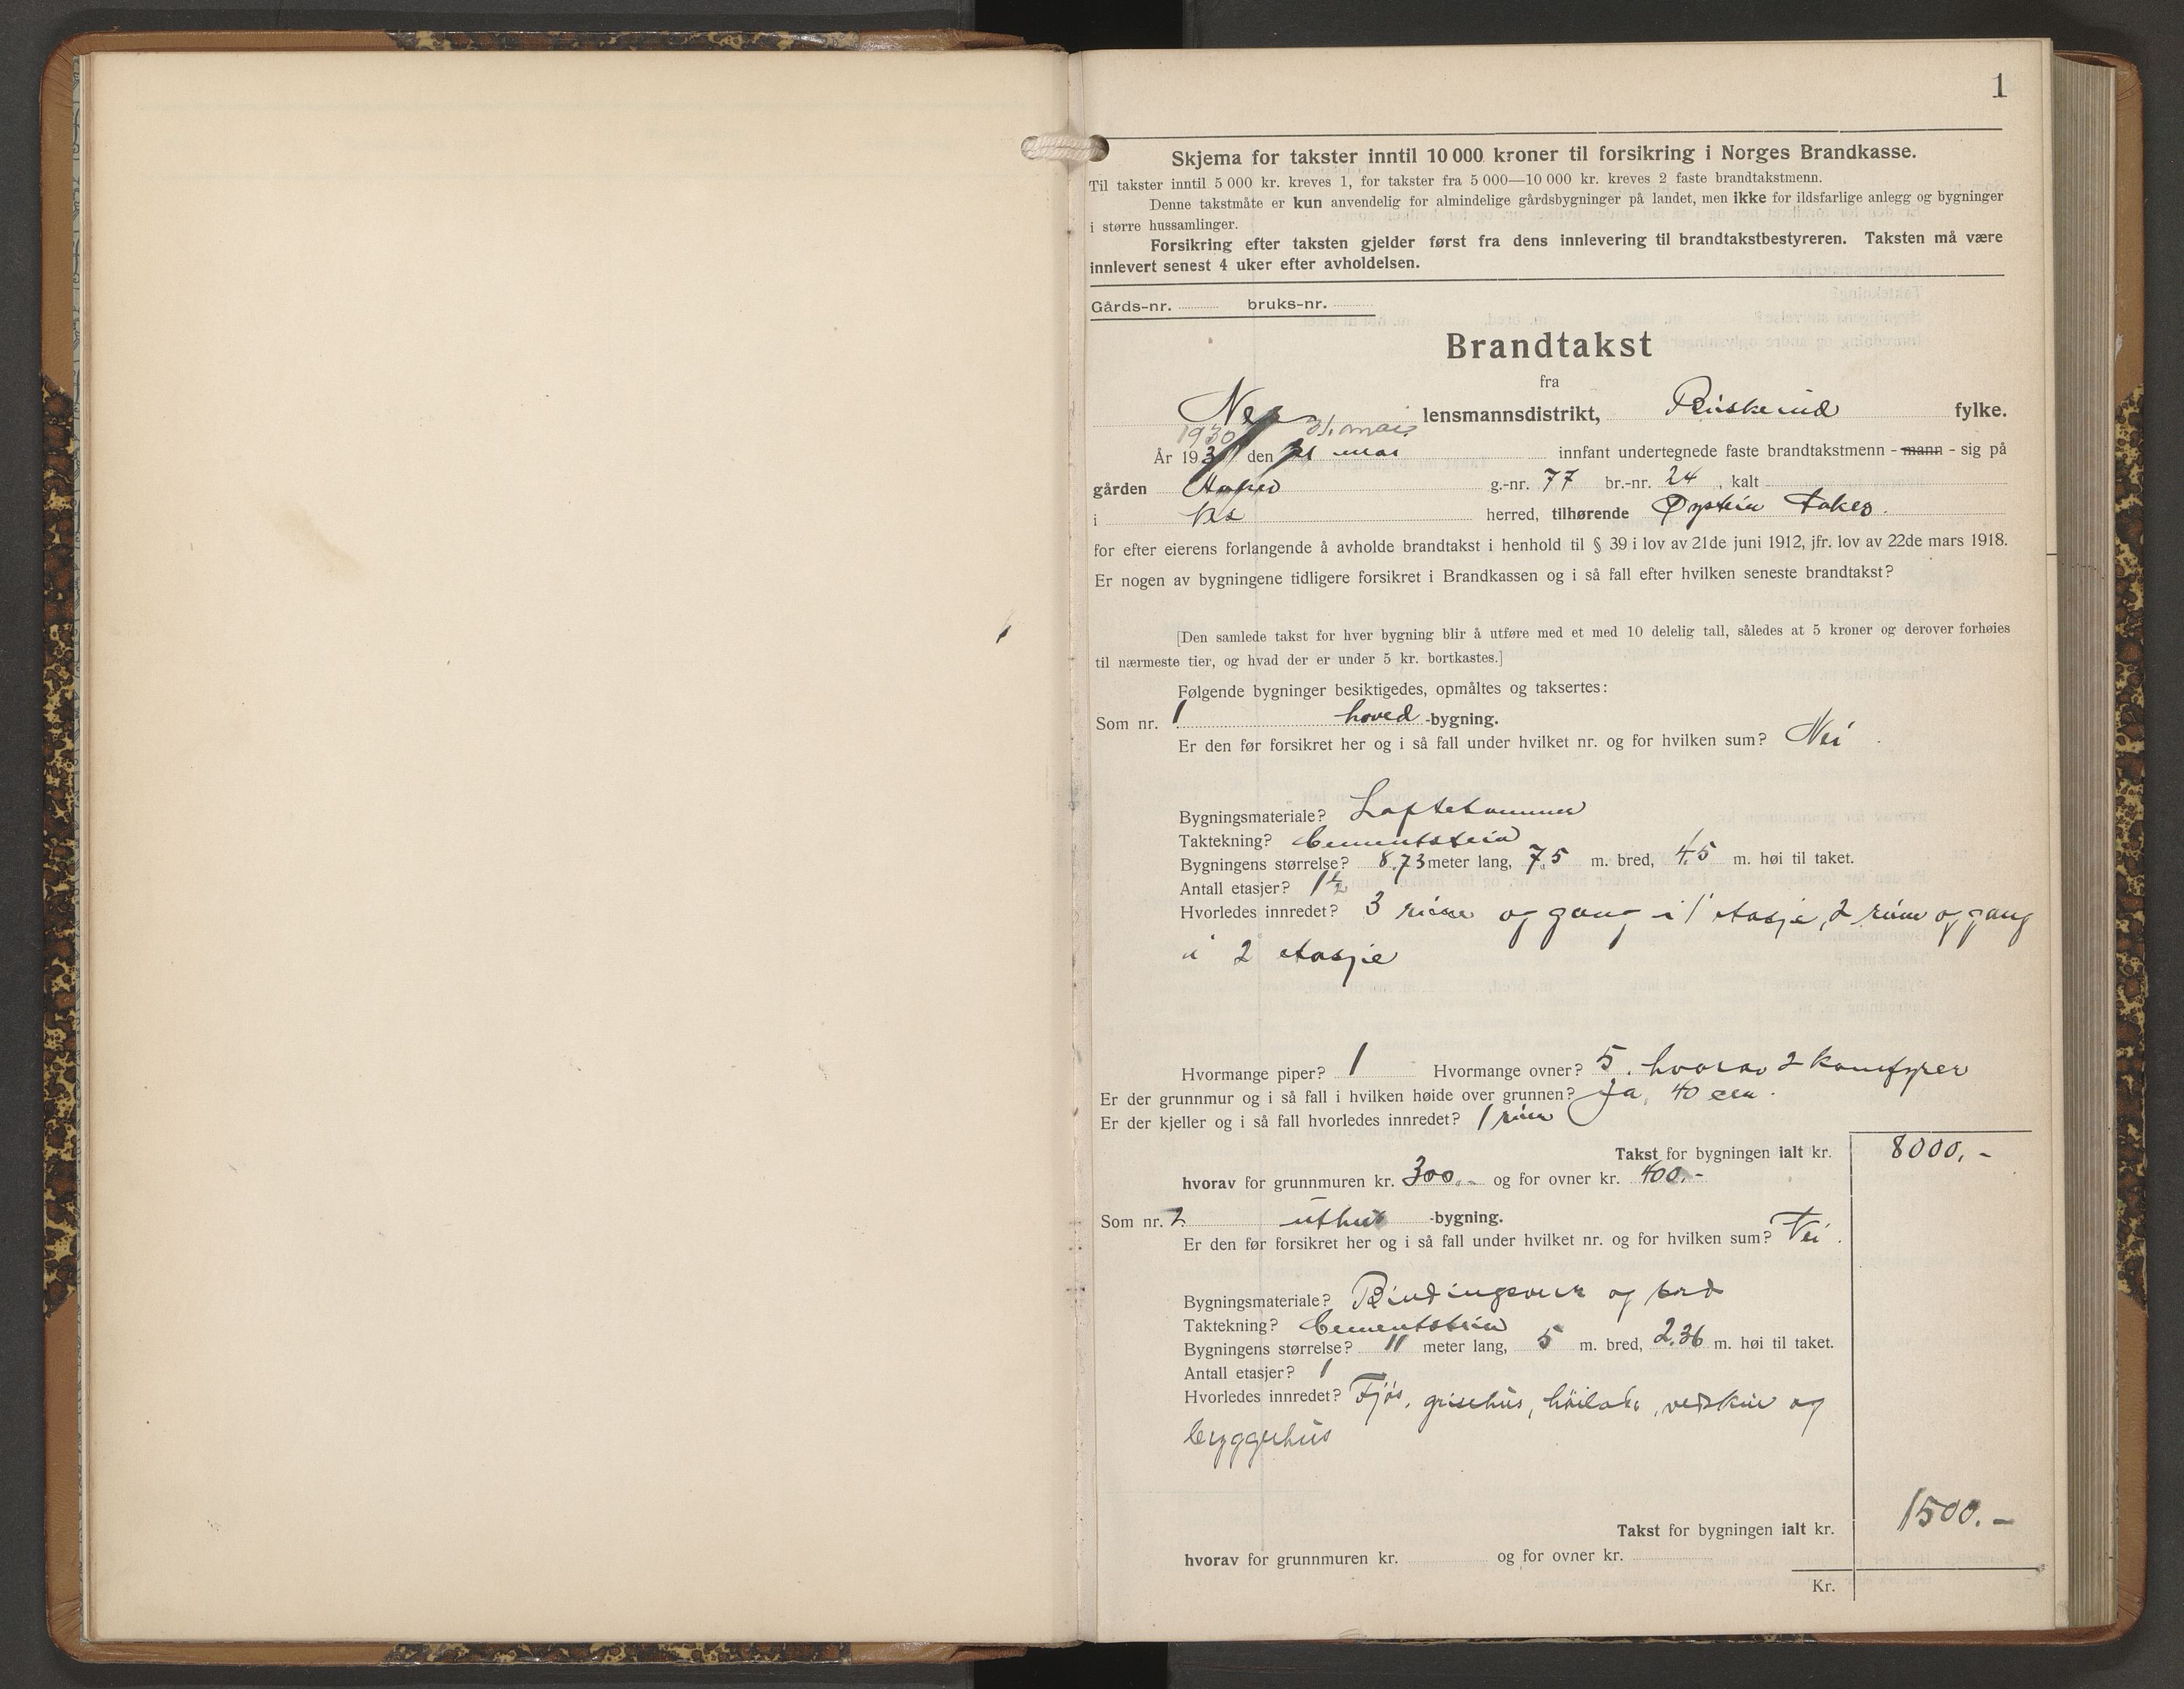 1
Skjema for takster inntil 10 000 kroner til forsikring i Norges Brandkasse.
Til takster inntil 5 000 kr. kreves 1, for takster fra 5 000—10 000 kr. kreves 2 faste brandtakstmenn.
Denne takstmåte er kun anvendelig for almindelige gårdsbygninger på landet, men ikke for ildsfarlige anlegg og bygninger
i større hussamlinger.
Forsikring efter taksten gjelder først fra dens innlevering til brandtakstbestyreren. Taksten må være
innlevert senest 4 uker efter avholdelsen.
Gårds-nr. bruks-nr.
Brandtakst
fra
Nes lensmannsdistrikt, Buskerud fylke.
1930 31. mai
År 193 den 31 mai innfant undertegnede faste brandtakstmenn - mann - sig på
gården g.-nr. 77 br.-nr. 24, kalt
i Nes herred, tilhørende Øystein
for efter eierens forlangende å avholde brandtakst i henhold til § 39 i lov av 21de juni 1912, jfr. lov av 22de mars 1918.
Er nogen av bygningene tidligere forsikret i Brandkassen og i så fall efter hvilken seneste brandtakst?
[Den samlede takst for hver bygning blir å utføre med et med 10 delelig tall, således at 5 kroner og derover forhøies
til nærmeste tier, og hvad der er under 5 kr. bortkastes.]
Følgende bygninger besiktigedes, opmåltes og taksertes:
Som nr. 1 hoved-bygning.
Er den før forsikret her og i så fall under hvilket nr. og for hvilken sum? Nei.
Bygningsmateriale? Laftetømmer
Taktekning? Cementstein
Bygningens størrelse? 8.73 meter lang, 7.5 m. bred, 4.5 m. høi til taket.
Antall etasjer? 1½
Hvorledes innredet? 3 rum og gang i 1 etasje, 2 rum og gang
i 2 etasje
Hvormange piper? 1 Hvormange ovner? 5. hvorav 2 komfyrer
Er der grunnmur og i så fall i hvilken høide over grunnen? Ja, 40 cm.
Er der kjeller og i så fall hvorledes innredet? 1 rum
Takst for bygningen ialt kr. 8000.-
hvorav for grunnmuren kr. 300.- og for ovner kr. 400.-
Som nr. 2 uthus-bygning.
Er den før forsikret her og i så fall under hvilket nr. og for hvilken sum? Nei.
Bygningsmateriale? Bindingsverk og bord
Taktekning? Cementstein
Bygningens størrelse? 11 meter lang, 5 m. bred, 2.36 m. høi til taket.
Antall etasjer? 1
Hvorledes innredet? Fjøs, grisehus, høilade, vedskur og
bryggerhus
Takst for bygningen ialt kr. 1500.-
hvorav for grunnmuren kr. og for ovner kr.
Kr.